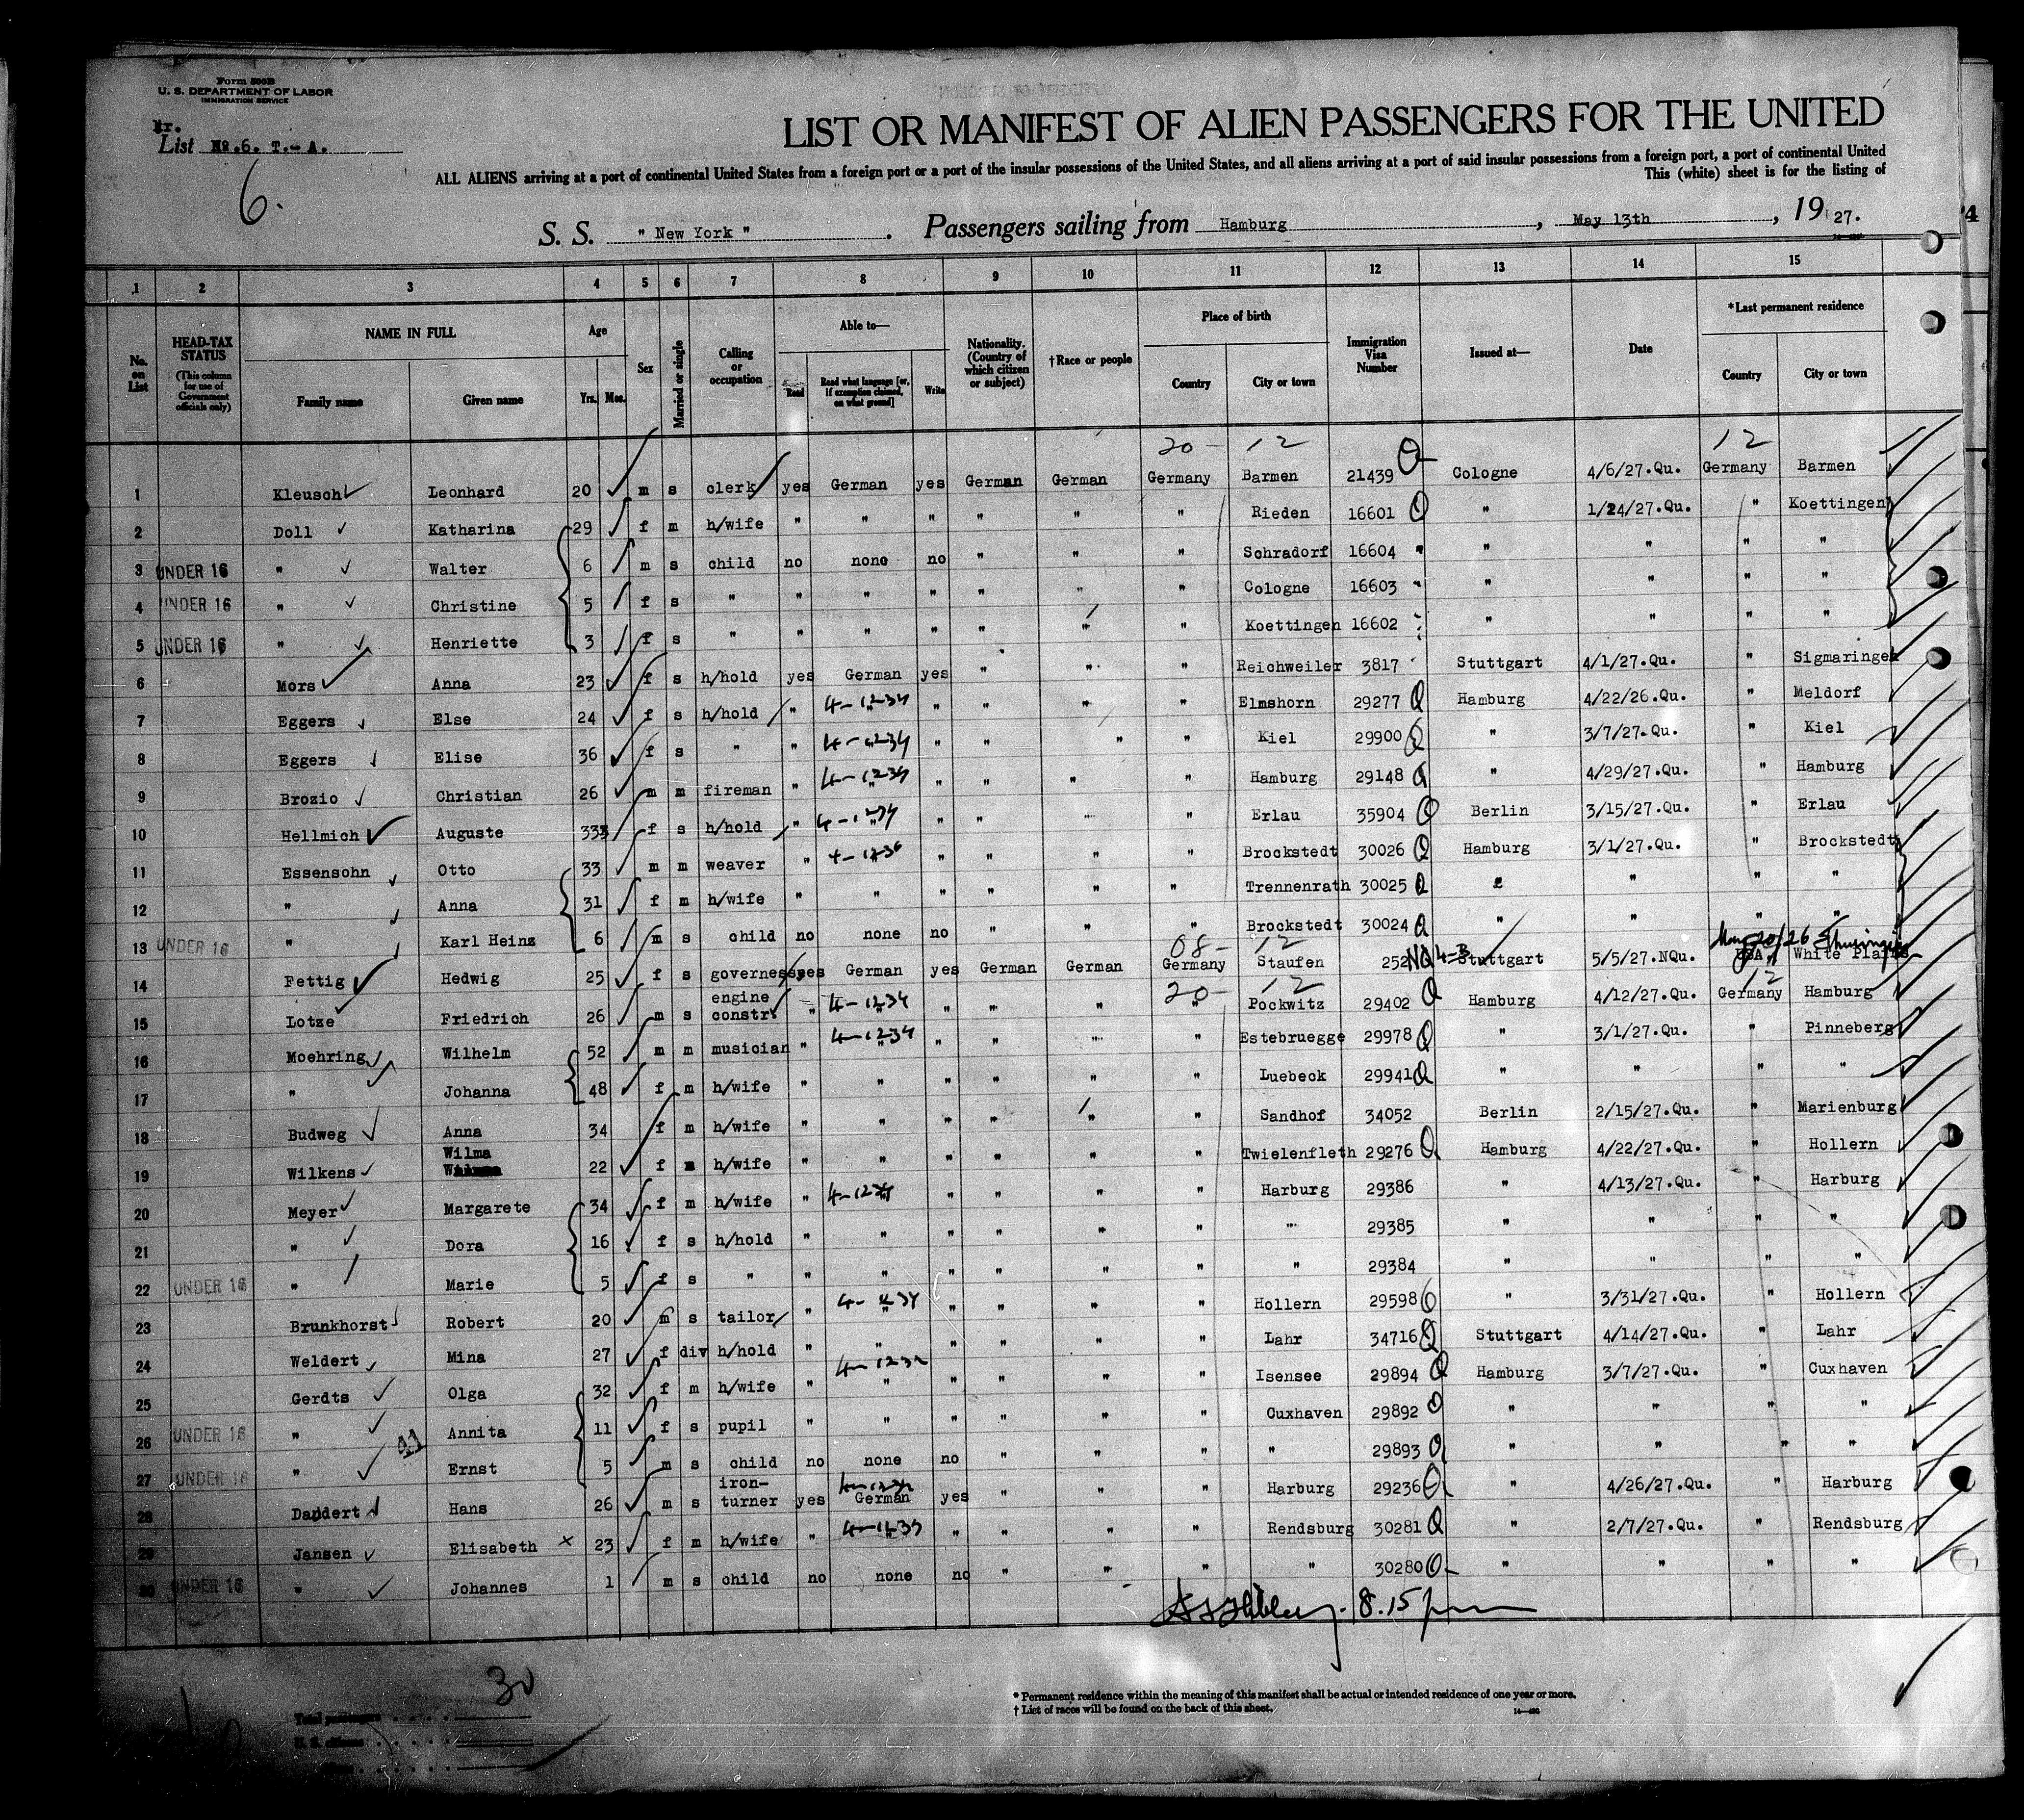 Form 500B
U. S. DEPARTMENT OF LABOR
IMMIGRATION SERVICE
List No.6. T.-A.
6.
LIST OR MANIFEST OF ALIEN PASSENGERS FOR THE UNITED
ALL ALIENS arriving at a port of continental United States from a foreign port or a port of the insular possessions of the United States, and all aliens arriving at a port of said insular possessions from a foreign port, a port of continental United
This (white) sheet is for the listing of
S. S. " New York ". Passengers sailing from Hamburg, May 13th, 19 27.
4
1 2 3 4 5 6 7 8 9 10 11 12 13 14 15
No. on List
HEAD-TAX STATUS (This column for use of Government officials only)
NAME IN FULL Family name Given name
Age Yrs. Mos.
Sex
Married or single
Calling or occupation
Able to— Read Read what language [or, if exemption claimed, on what ground] Write
Nationality. (Country of which citizen or subject)
†Race or people
Place of birth Country City or town
Immigration Visa Number
Issued at—
Date
*Last permanent residence Country City or town
20- 12 12
1 Kleusch Leonhard 20 m s clerk yes German yes German German Germany Barmen 21439 Cologne 4/6/27.Qu. Germany Barmen
2 Doll Katharina 29 f m h/wife " " " " " " Rieden 16601 " 1/24/27.Qu. " Koettingen
3 UNDER 16 " Walter 6 m s child no none no " " " Schradorf 16604 " " " "
4 UNDER 16 " Christine 5 f s " " " " " " " Cologne 16603 " " " "
5 UNDER 16 " Henriette 3 f s " " " " " " " Koettingen 16602 " " " "
6 Mors Anna 23 f s h/hold yes German yes " " " Reichweiler 3817 Stuttgart 4/1/27.Qu. " Sigmaringen
7 Eggers Else 24 f s h/hold " " " " " " Elmshorn 29277 Hamburg 4/22/26.Qu. " Meldorf
8 Eggers Elise 36 f s " " " " " " " Kiel 29900 " 3/7/27.Qu. " Kiel
9 Brozio Christian 26 m m fireman " " " " " " Hamburg 29148 " 4/29/27.Qu. " Hamburg
10 Hellmich Auguste 33 f s h/hold " " " " " " Erlau 35904 Berlin 3/15/27.Qu. " Erlau
11 Essensohn Otto 33 m m weaver " " " " " " Brockstedt 30026 Hamburg 3/1/27.Qu. " Brockstedt
12 " Anna 31 f m h/wife " " " " " " Trennenrath 30025 " " " "
13 UNDER 16 " Karl Heinz 6 m s child no none no " " " Brockstedt 30024 " " " "
08- 12
14 Fettig Hedwig 25 f s governess yes German yes German German Germany Staufen 252 NQ 4-B Stuttgart 5/5/27.NQu. USA White Plains
20- 12 12
15 Lotze Friedrich 26 m s engine constr. " " " " " " Pockwitz 29402 Hamburg 4/12/27.Qu. Germany Hamburg
16 Moehring Wilhelm 52 m m musician " " " " " " Estebruegge 29978 " 3/1/27.Qu. " Pinneberg
17 " Johanna 48 f m h/wife " " " " " " Luebeck 29941 " " " "
18 Budweg Anna 34 f m h/wife " " " " " " Sandhof 34052 Berlin 2/15/27.Qu. " Marienburg
19 Wilkens Wilma 22 f h/wife " " " " " " Twielenfleth 29276 Hamburg 4/22/27.Qu. " Hollern
20 Meyer Margarete 34 f m h/wife " " " " " " Harburg 29386 " 4/13/27.Qu. " Harburg
21 " Dora 16 f s h/hold " " " " " " " 29385 " " " "
22 UNDER 16 " Marie 5 f s " " " " " " " " 29384 " " " "
23 Brunkhorst Robert 20 m s tailor " " " " " " Hollern 29598 " 3/31/27.Qu. " Hollern
24 Weldert Mina 27 f div h/hold " " " " " " Lahr 34716 Stuttgart 4/14/27.Qu. " Lahr
25 Gerdts Olga 32 f m h/wife " " " " " " Isensee 29894 Hamburg 3/7/27.Qu. " Cuxhaven
26 UNDER 16 " Annita 11 f s pupil " " " " " " Cuxhaven 29892 " " " "
27 UNDER 16 " Ernst 5 m s child no none no " " " " 29893 " " " "
28 Dandert Hans 26 m s iron-turner yes German yes " " " Harburg 29236 " 4/26/27.Qu. " Harburg
29 Jansen Elisabeth x 23 f m h/wife " " " " " " Rendsburg 30281 " 2/7/27.Qu. " Rendsburg
30 UNDER 16 " Johannes 1 m s child no none no " " " " 30280 " " " "
8.15 pm
30
Total passengers
U. S. citizens
* Permanent residence within the meaning of this manifest shall be actual or intended residence of one year or more.
† List of races will be found on the back of this sheet.